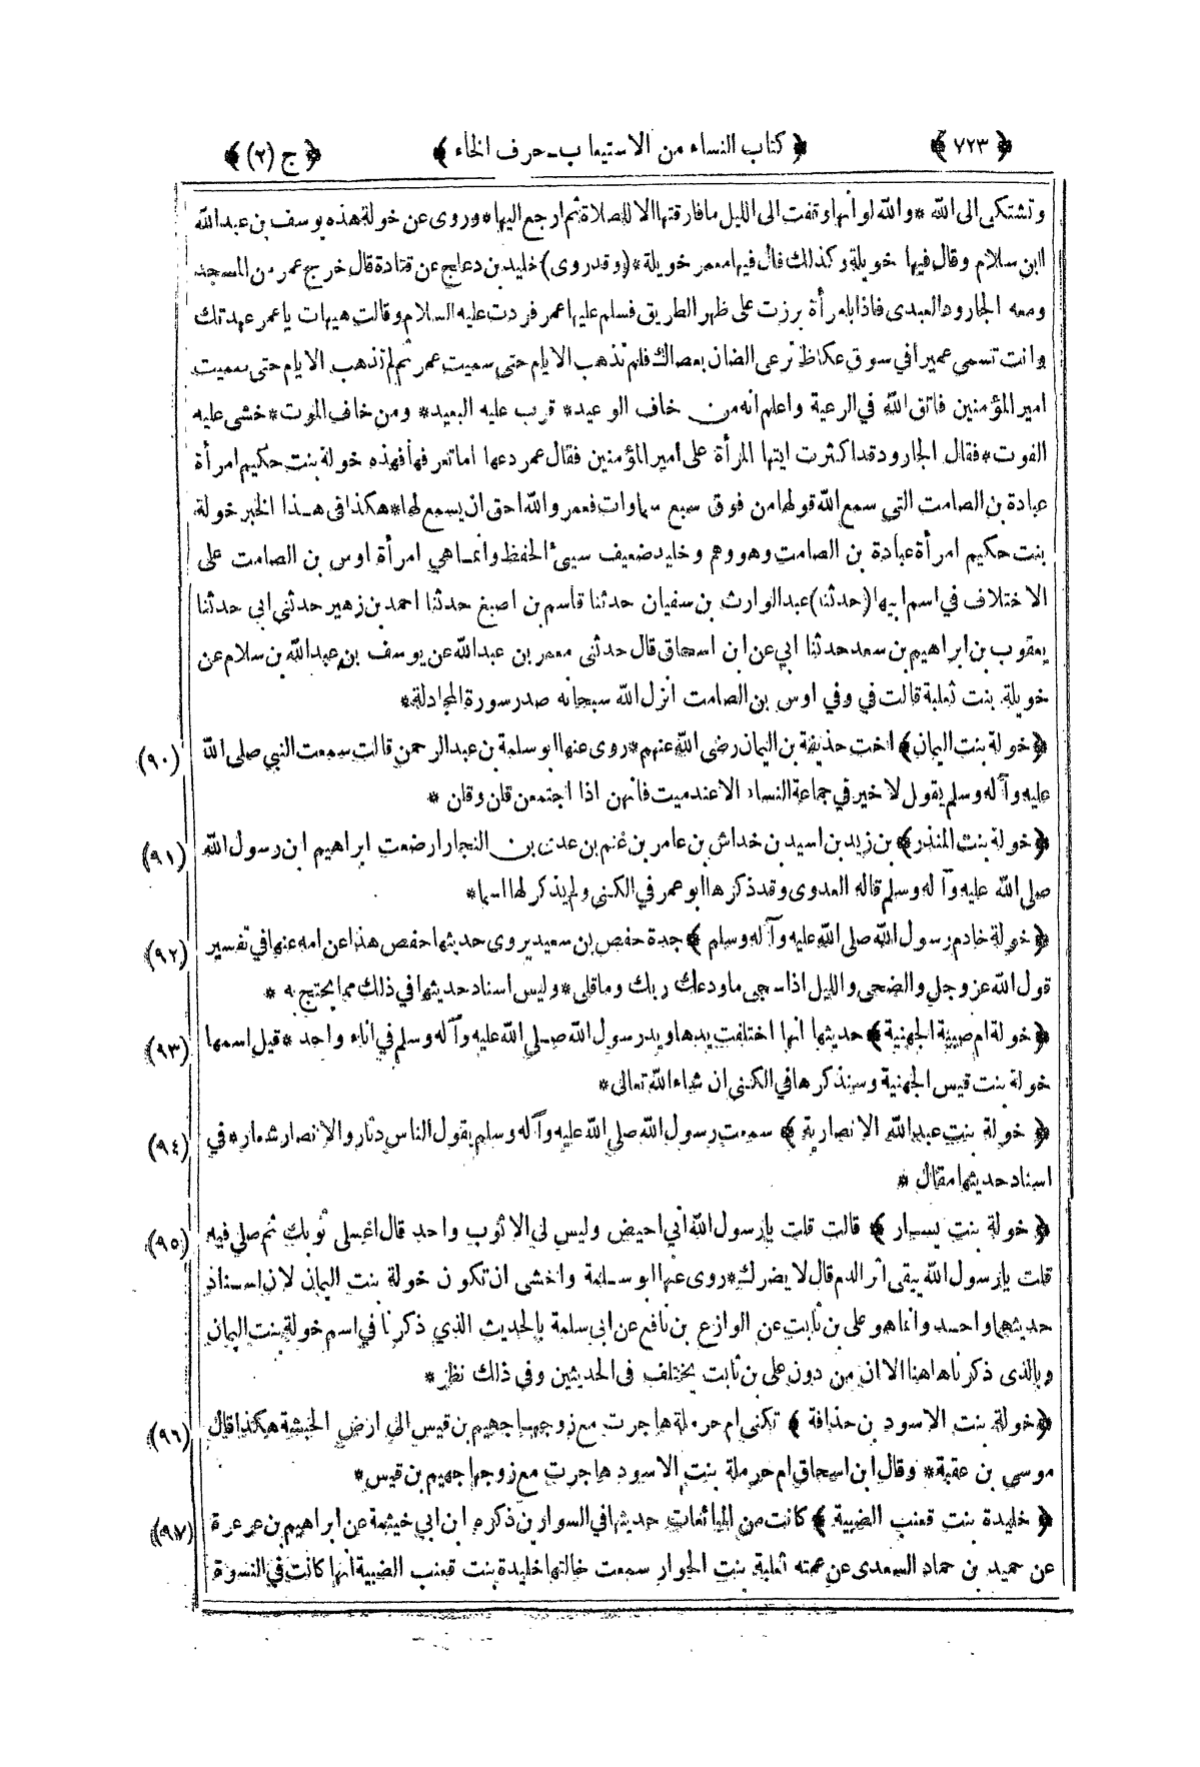 ﴿ ٧٢٣ ﴾ ﴿ كتاب النساء من الاستيعاب ـ حرف الخاء ﴾ ﴿ ج (٢) ﴾
وتشتكى الى الله * والله لو أنها وقفت الى الليل ما فارقتها الا للصلاة ثم ارجع اليها * وروى عن خولة هذه يوسف بن عبد الله
ابن سلام وقال فيها خويلة وكذلك قال فيها معمر خويلة * (وقد روى) خليد بن دعلج عن قتادة قال خرج عمر من المسجد
ومعه الجارود العبدى فاذا بامرأة برزت على ظهر الطريق فسلم عليها عمر فردت عليه السلام وقالت هيهات يا عمر عهدتك
وانت تسمى عميرا في سوق عكاظ ترعى الضان بعصاك فلم تذهب الايام حتى سميت عمر ثم لم تذهب الايام حتى سميت
امير المؤمنين فاتق الله في الرعية واعلم انه من خاف الوعيد * قرب عليه البعيد * ومن خاف الموت * خشى عليه
الفوت * فقال الجارود قد اكثرت ايتها المرأة على امير المؤمنين فقال عمر دعها اما تعرفها فهذه خولة بنت حكيم امرأة
عبادة بن الصامت التي سمع الله قولها من فوق سبع سماوات فعمر والله احق ان يسمع لها * هكذا فى هذا الخبر خولة
بنت حكيم امرأة عبادة بن الصامت وهو وهم وخليد ضعيف سيئ الحفظ وانما هي امرأة اوس بن الصامت على
الاختلاف في اسم ابيها (حدثنا) عبد الوارث بن سفيان حدثنا قاسم بن اصبغ حدثنا احمد بن زهير حدثني ابى حدثنا
يعقوب بن ابراهيم بن سعد حدثنا ابي عن ابن اسحاق قال حدثنى معمر بن عبد الله عن يوسف بن عبد الله بن سلام عن
خويلة بنت ثعلبة قالت في وفي اوس بن الصامت انزل الله سبحانه صدر سورة المجادلة *
﴿ خولة بنت اليمان ﴾ اخت حذيفة بن اليمان رضى الله عنهم * روى عنها ابو سلمة بن عبد الرحمن قالت سمعت النبي صلى الله (٩٠)
عليه وآله وسلم يقول لا خير في جماعة النساء الا عند ميت فانهن اذا اجتمعن قلن وقلن *
﴿ خولة بنت المنذر ﴾ بن زيد بن اسيد بن خداش بن عامر بن غنم بن عدى بن النجار ارضعت ابراهيم ابن رسول الله (٩١)
صلى الله عليه وآله وسلم قاله العدوى وقد ذكرها ابو عمر في الكنى ولم يذكر لها اسما *
﴿ خولة خادم رسول الله صلى الله عليه وآله وسلم ﴾ جدة حفص بن سعيد يروى حديثها حفص هذا عن امه عنها في تفسير (٩٢)
قول الله عز وجل والضحى والليل اذا سجى ما ودعك ربك وما قلى * وليس اسناد حديثها في ذلك مما يحتج به *
﴿ خولة ام صبية الجهنية ﴾ حديثها انها اختلفت يدها ويد رسول الله صلى الله عليه وآله وسلم في اناء واحد * قيل اسمها (٩٣)
خولة بنت قيس الجهنية وسنذكرها في الكنى ان شاء الله تعالى *
﴿ خولة بنت عبد الله الانصارية ﴾ سمعت رسول الله صلى الله عليه وآله وسلم يقول الناس دثار والانصار شعار * في (٩٤)
اسناد حديثها مقال *
﴿ خولة بنت يسار ﴾ قالت قلت يا رسول الله أنى احيض وليس لى الا ثوب واحد قال اغسلى ثوبك ثم صلي فيه (٩٥)
قلت يا رسول الله يبقى أثر الدم قال لا يضرك * روى عنها ابو سلمة واخشى ان تكون خولة بنت اليمان لان اسناد
حديثهما واحد وانما هو على بن ثابت عن الوازع بن نافع عن ابى سلمة بالحديث الذي ذكرنا في اسم خولة بنت اليمان
وبالذى ذكرناه اهنا الا ان من دون على بن ثابت يختلف فى الحديثين وفى ذلك نظر *
﴿ خولة بنت الاسود بن حذافة ﴾ تكنى ام حرملة هاجرت مع زوجها جهيم بن قيس الى ارض الحبشة هكذا قال (٩٦)
موسى بن عقبة * وقال ابن اسحاق ام حرملة بنت الاسود هاجرت مع زوجها جهيم بن قيس *
﴿ خليدة بنت قعنب الضبية ﴾ كانت من المبائعات حديثها في السوارين ذكره ابن ابي خيثمة عن ابراهيم بن عرعرة (٩٧)
عن حميد بن حماد السعدى عن عمته ثعلبة بنت الجوار سمعت خالتها خليدة بنت قعنب الضبية انها كانت في النسوة